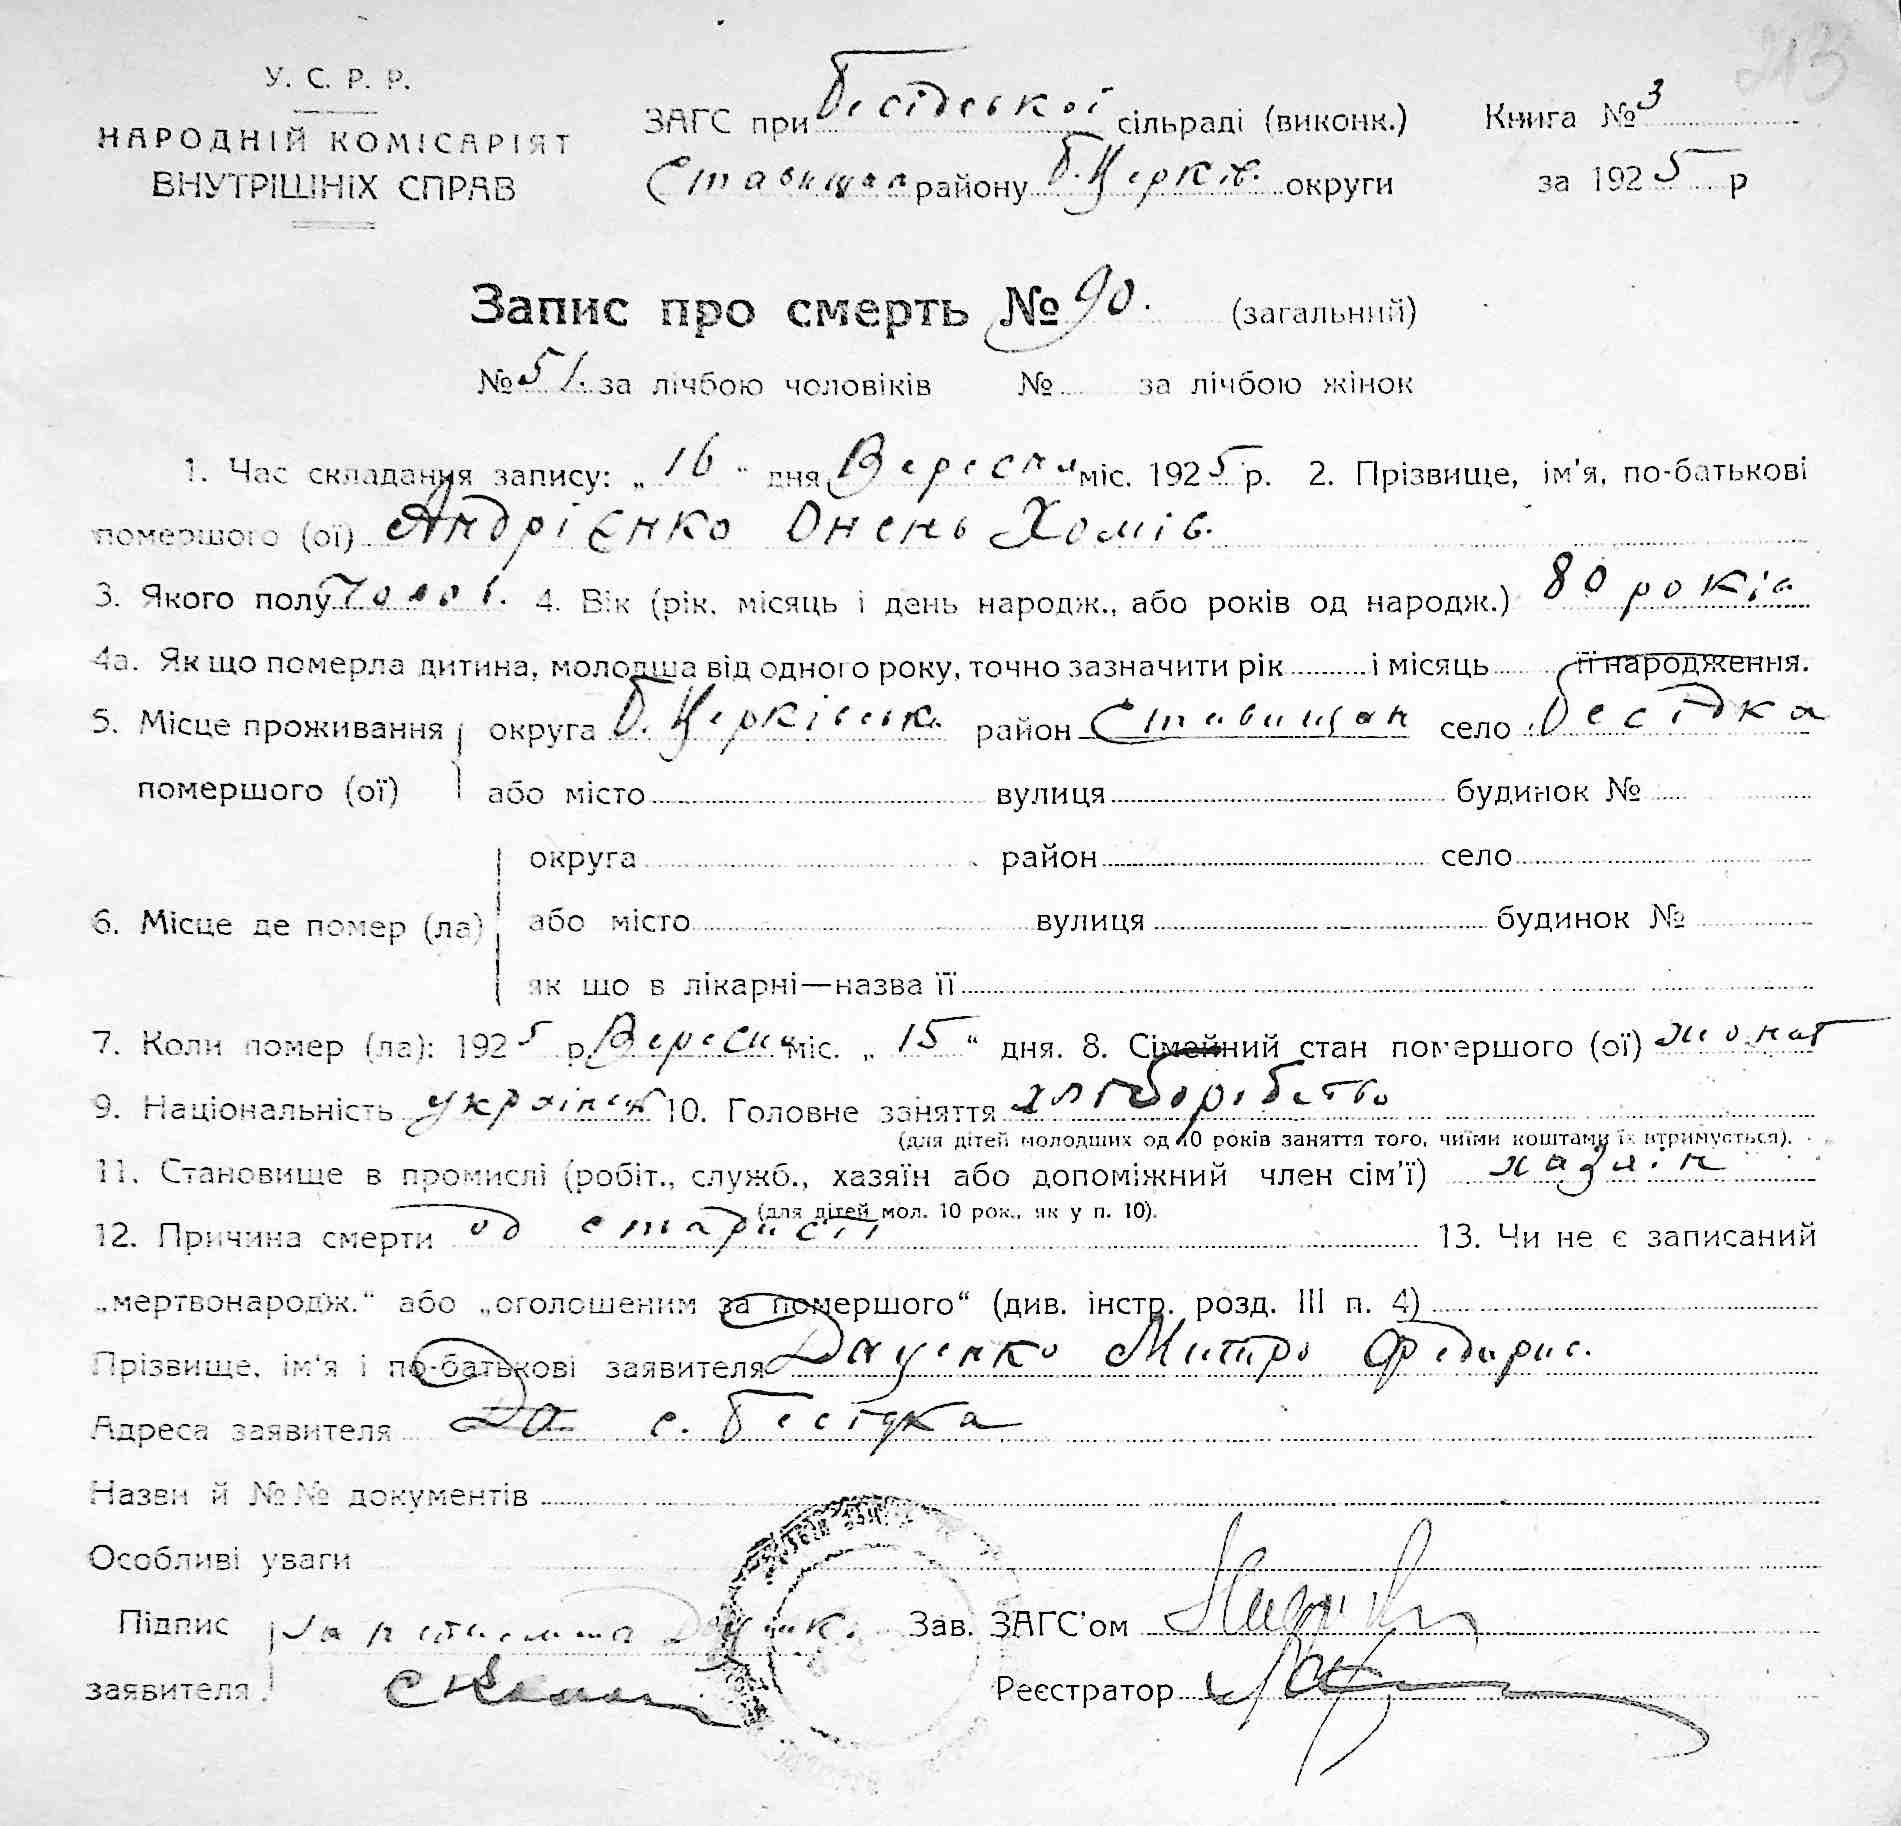 213
У. С. Р. Р.
НАРОДНІЙ КОМІСАРІЯТ
ВНУТРІШНІХ СПРАВ
ЗАГС при Бесідської сільраді (виконк.)
Ставищан району Б. Церків. округи
Книга № 3
за 1925 р
Запис про смерть № 90. (загальний)
№ 51. за лічбою чоловіків № за лічбою жінок
1. Час складання запису: „ 16 “ дня Вересня міс. 1925 р. 2. Прізвище, ім'я, по-батькові
помершого (ої) Андрієнко Онень Хомів.
3. Якого полу Чолов. 4. Вік (рік, місяць і день народж., або років од народж.) 80 років
4а. Як що померла дитина, молодша від одного року, точно зазначити рік і місяць її народження.
5. Місце проживання округа Б. Церківськ. район Ставищан село Бесідка
помершого (ої) або місто вулиця будинок №
округа район село
6. Місце де помер (ла) або місто вулиця будинок №
як що в лікарні—назва її
7. Коли помер (ла): 1925 р. Вересня міс. „ 15 “ дня. 8. Сімейний стан помершого (ої) жонат
9. Національність українец 10. Головне заняття хліборобство
(для дітей молодших од 10 років заняття того, чиїми коштами їх втримується).
11. Становище в промислі (робіт., служб., хазяїн або допоміжний член сім'ї) хазяїн
(для дітей мол. 10 рок., як у п. 10).
12. Причина смерти од старисті 13. Чи не є записаний
„мертвонародж.“ або „оголошеним за помершого“ (див. інстр. розд. III п. 4)
Прізвище, ім'я і по-батькові заявителя Даценко Митро Федорис.
Адреса заявителя Да с. Бесідка
Назви й №№ документів
Особливі уваги
Підпис За неписьменна Даценк. Зав. ЗАГС'ом
заявителя Реєстратор